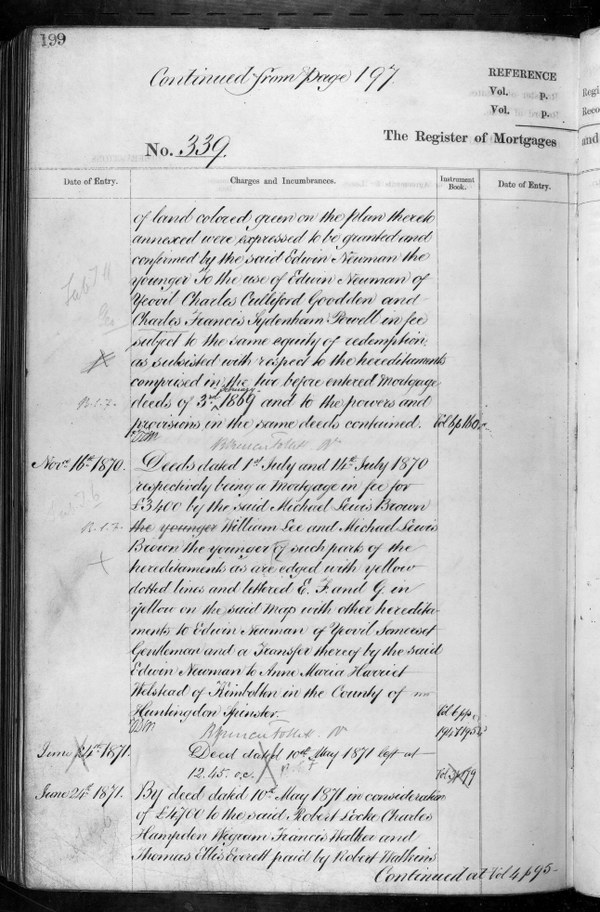 199
Continued from page 197
REFERENCE
Vol. p.
Vol. p.
No. 339.
The Register of Mortgages
Regi
Reco
and
Date of Entry.
Charges and Incumbrances.
Instrument Book.
Date of Entry.
of land colored green on the plan thereto
annexed were expressed to be granted and
confirmed by the said Edwin Newman the
younger To the use of Edwin Newman of
Yeovil Charles Culliford Goodden and
Charles Francis Sydenham Powell in fee
subject to the same equity of redemption
as subsisted with respect to the hereditaments
comprised in the two before entered Mortgage
deeds of 3rd February 1869 and to the powers and
provisions in the same deeds contained. Vol 4 p 160
Novr. 16th 1870. Deeds dated 1st July and 14th July 1870
respectively being a Mortgage in fee for
£3400 by the said Michael Lewis Brown
the younger William Lee and Michael Lewis
Brown the younger of such parts of the
hereditaments as are edged with yellow
dotted lines and lettered E. F. and G. in
yellow on the said Map with other heredita-
ments to Edwin Newman of Yeovil Somerset
Gentleman and a Transfer thereof by the said
Edwin Newman to Anne Maria Harriet
Welstead of Kimbolton in the County of
Huntingdon Spinster.
June 24th 1871. Deed dated 10th May 1871 left at
12.45. o.c.
June 24th 1871. By deed dated 10th May 1871 in consideration
of £4700 to the said Robert Locke Charles
Hampden Wigram Francis Walker and
Thomas Ellis Everett paid by Robert Watkins
Continued at Vol 4 p 95